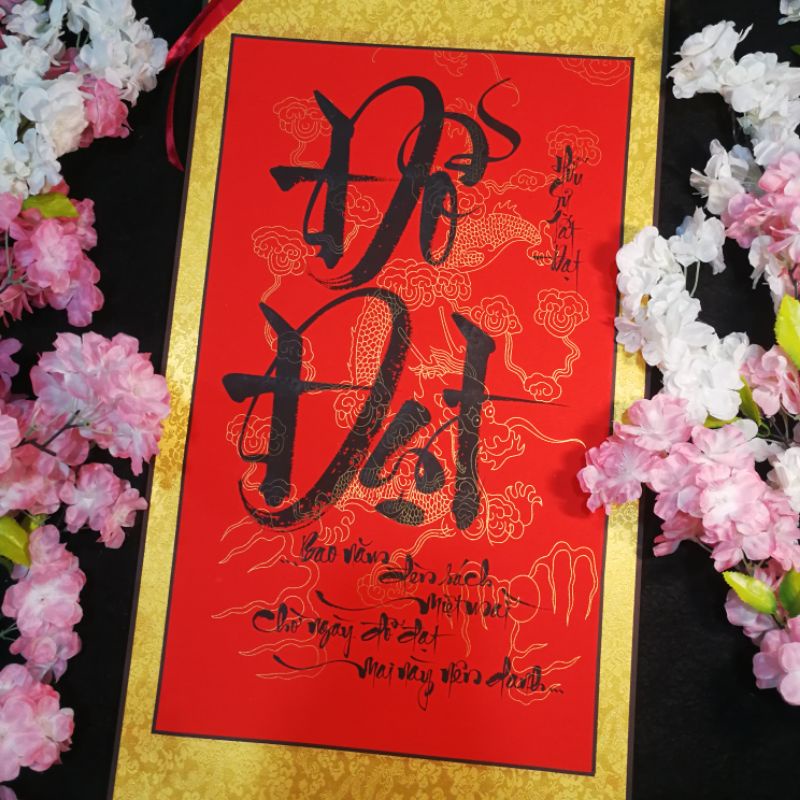 Đỗ
Đạt
Hữu
Cự
Tất
Đạt
...Bao năm
đèn sách
miệt mài
Chờ ngày đỗ đạt
mai này nên danh...